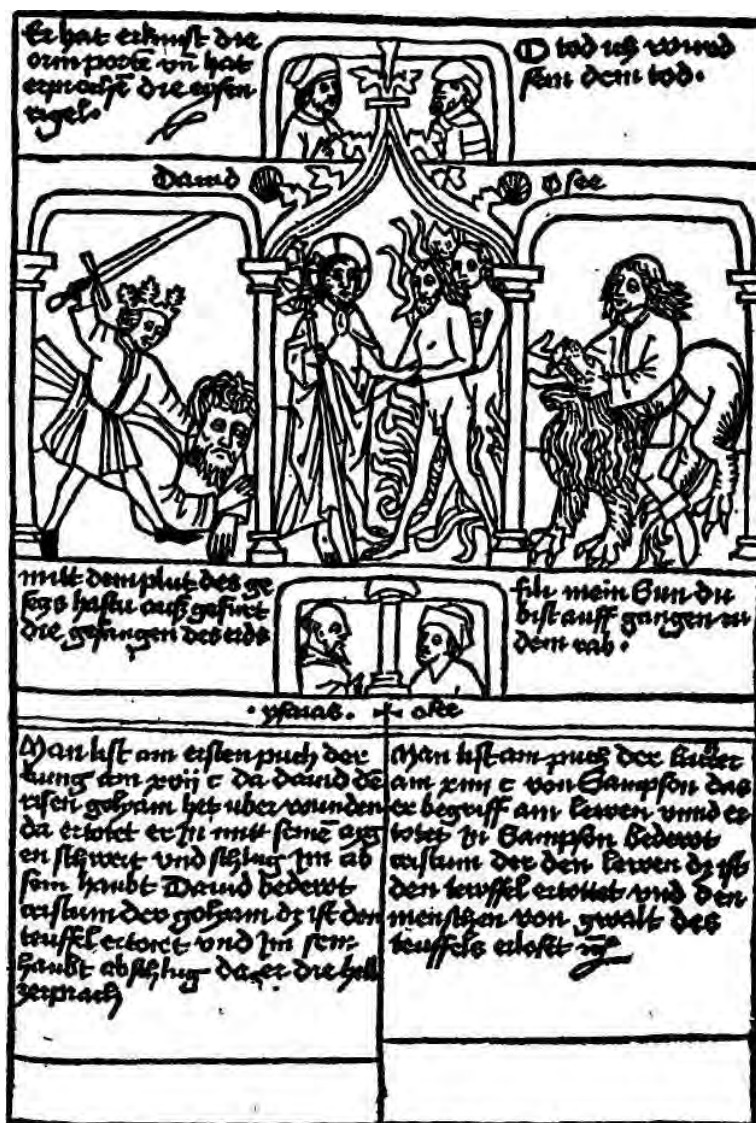 Er hat erknist die
erin porte vn hat
erprochē die eysen
rigel.
O tod ich würd
sein dem tod.
Dauid
Osee
mitt dem plut des ge
setzs hastu auß gefürt
die gefangen des aids
fili mein Sun du
bist auff gangen zu
dem rab.
. ysaias.
osee
Man list am ersten puch der
kung am xvij c da dauid dē
risen golyam het uber wunden
da ertotet er In mitt seinē aig
en schwert vnd schlug Im ab
sein haubt Dauid bedewt
cristum der golyam dz ist den
teuffel ertotet vnd Im sein
haubt abschlug da er die hell
zerprach
Man list am puch der
am xiiij c von Sampson das
er begriff ain lewen vnnd er
totet In Sampson bedewt
cristum der den lewen dz ist
den teuffel ertottet vnd den
menschen von gwalt des
teuffels erlost